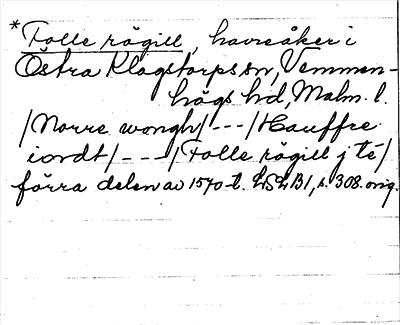 * Folle rägill, havreåker i
Östra Klagstorps sn, Vemmen-
högs hd, Malm. l.
/Norre wongh/ --- /Hauffre
iordt/ --- /Folle rägill j té/
förra delen av 1570-t. LSLB1, s. 308. orig.